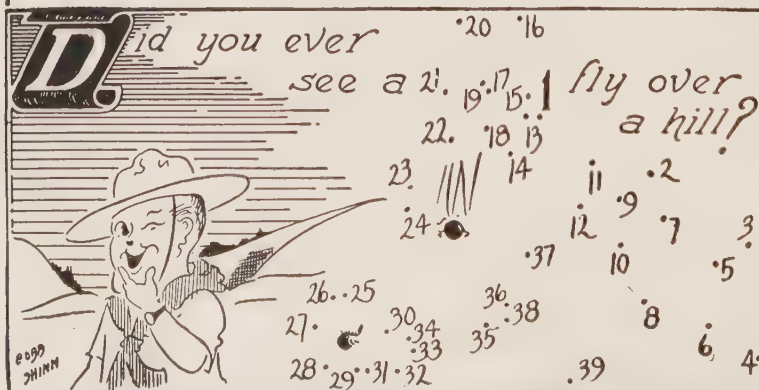 Did you ever
see a fly over
a hill?
20 16
21 19 17 15 1
22 18 13
23 14 11 2
24 12 9 7 3
37 10 5
26 25 36 38 8
27 30 34 35 6
33
28 29 31 32 39 4
SU
COBB
SHINN